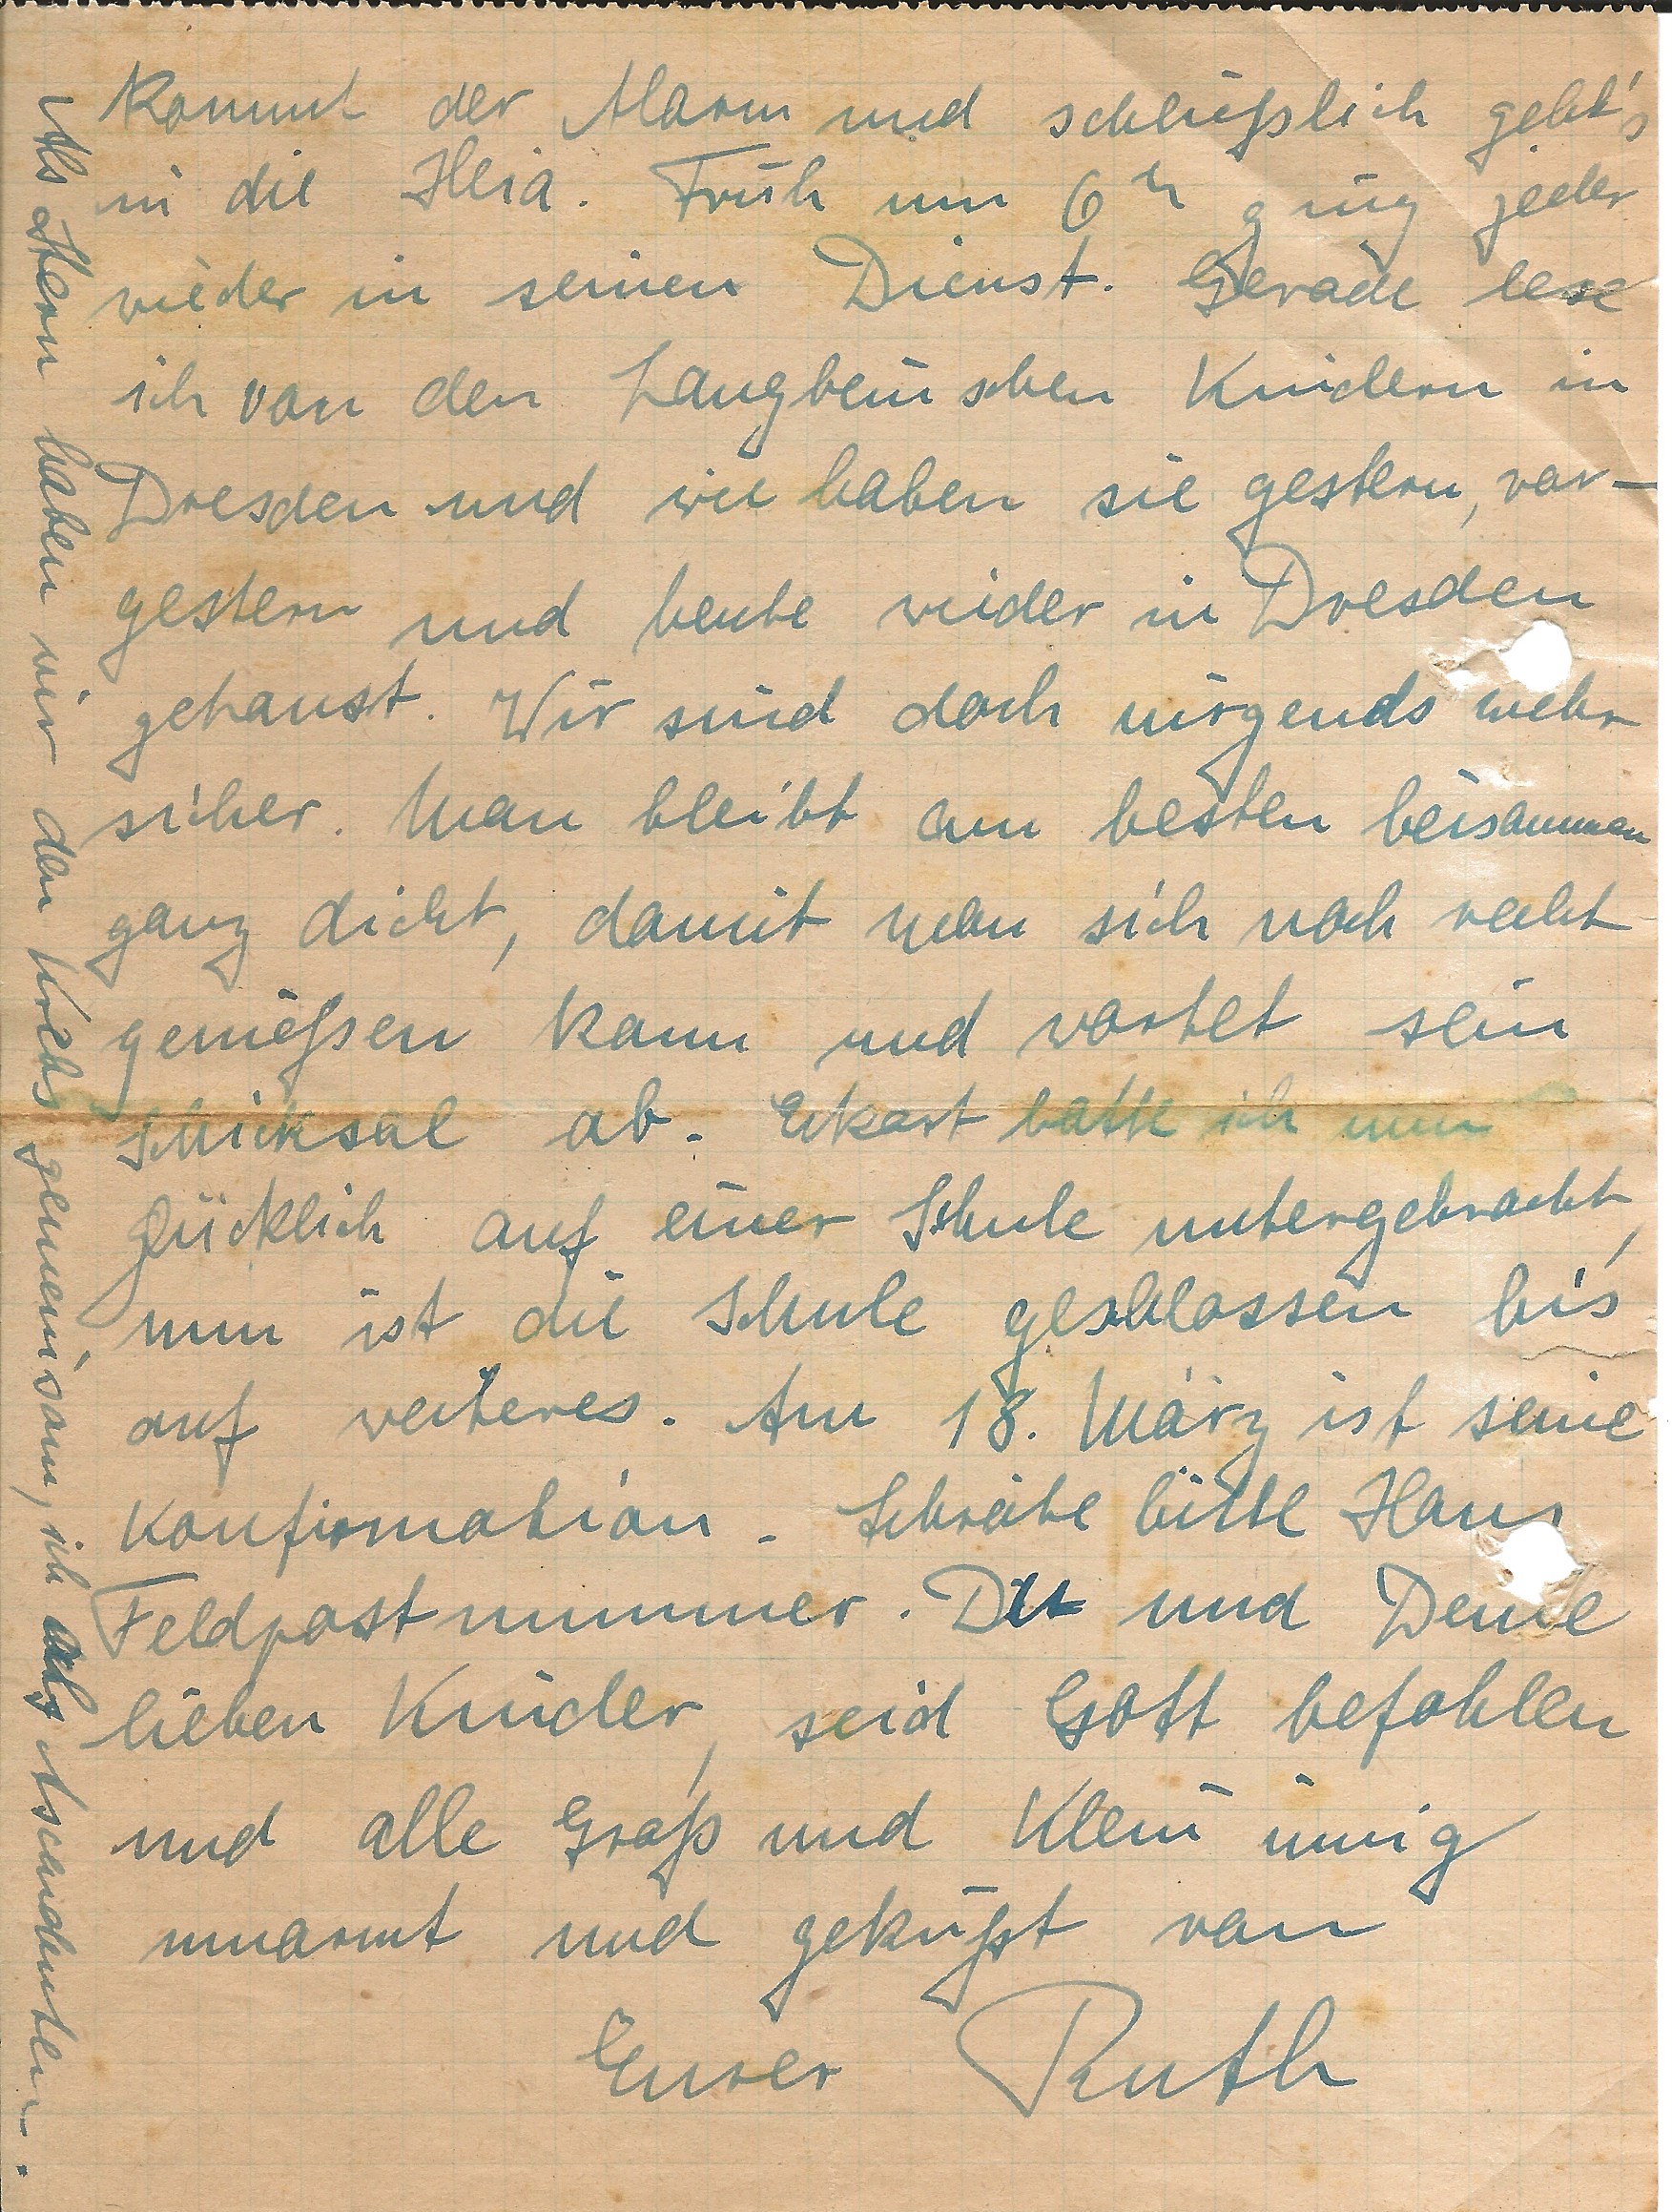 kommt der Alarm und schließlich geht's
in die Heia. Früh um 6 h ging jeder
wieder in seinen Dienst. Gerade lese
ich von den Langbeinschen Kindern in
Dresden und wie haben sie gestern, vor-
gestern und heute wieder in Dresden
gehaust. Wir sind doch nirgends mehr
sicher. Man bleibt am besten beisammen
ganz dicht, damit man sich noch recht
genießen kann und wartet sein
Schicksal ab. Ekart hatte ich nun
glücklich auf einer Schule untergebracht,
nun ist die Schule geschlossen bis
auf weiteres. Am 18. März ist seine
Konfirmation. Schreibe bitte Hans
Feldpostnummer. Du und Deine
lieben Kinder, seid Gott befohlen
und alle Groß und Klein innig
umarmt und geküßt von
Eurer Ruth
Als Stern haben wir den Krebs gemeinsam, ich als Ascendenten.